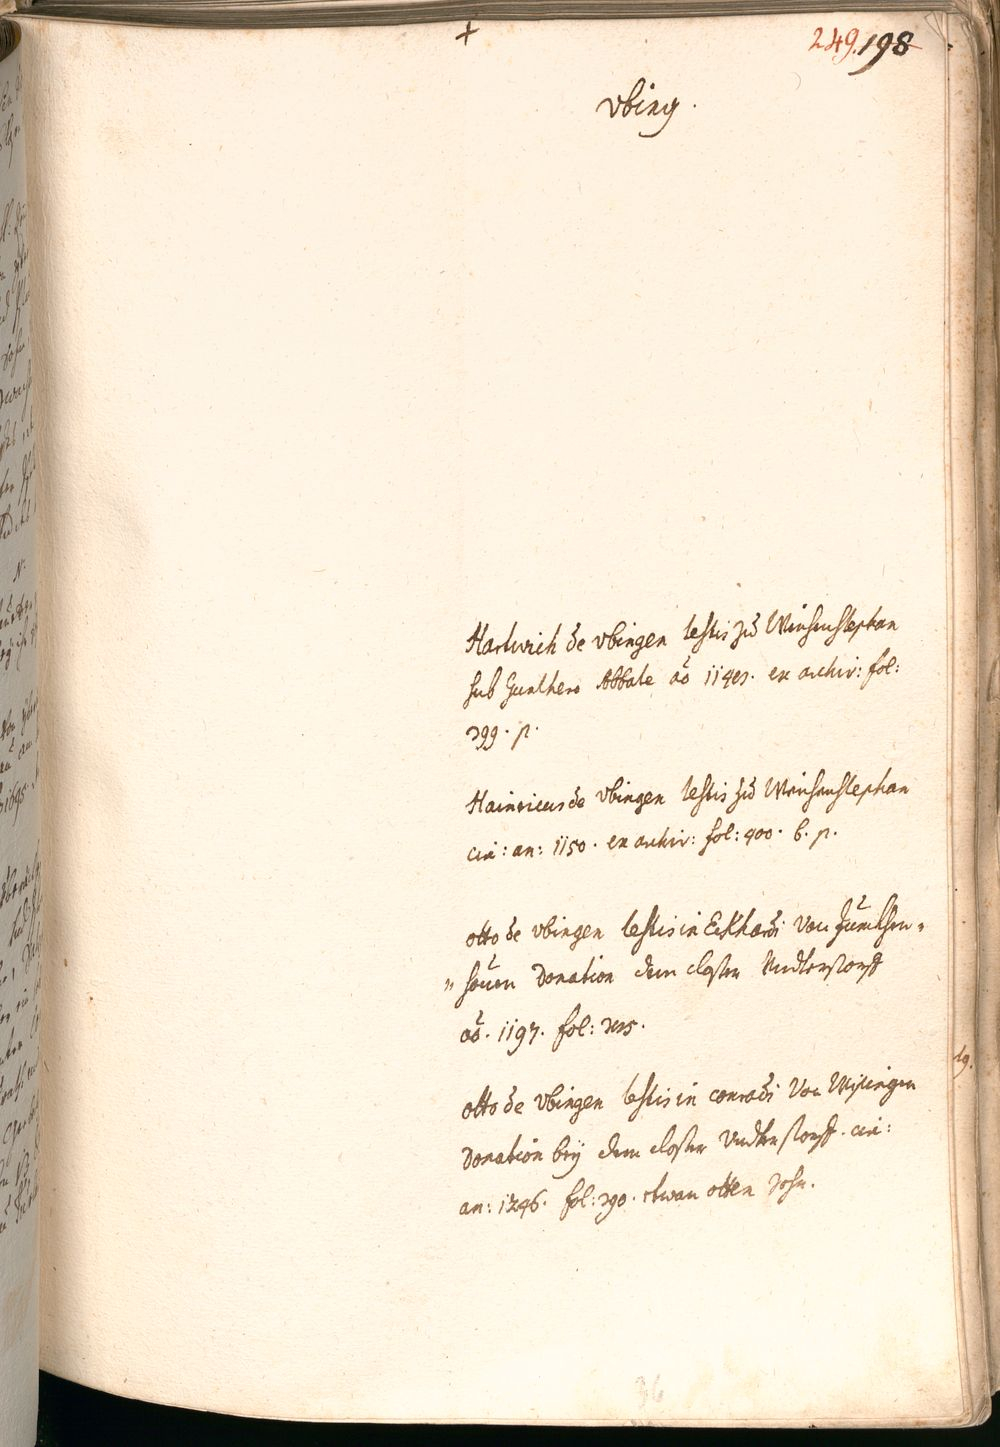 +
249. 198
Vbing.
Hartwich de Vbingen testis zu Weihenstephan
sub Gunthero Abbate aō 114. ex archiv: fol:
399. p.
Hainricus de Vbingen testis zu Weihenstephan
cir: an: 1150. ex archiv: fol: 400. b. p.
otto de Vbingen testis in Eckhardi von
Donation dem closter Undterstorff
aō. 1197. fol:
otto de Vbingen testis in conradi von
Donation bey dem closter Undterstorff. cir:
an: 1246. fol: 390. etwan otten Sohn.
36